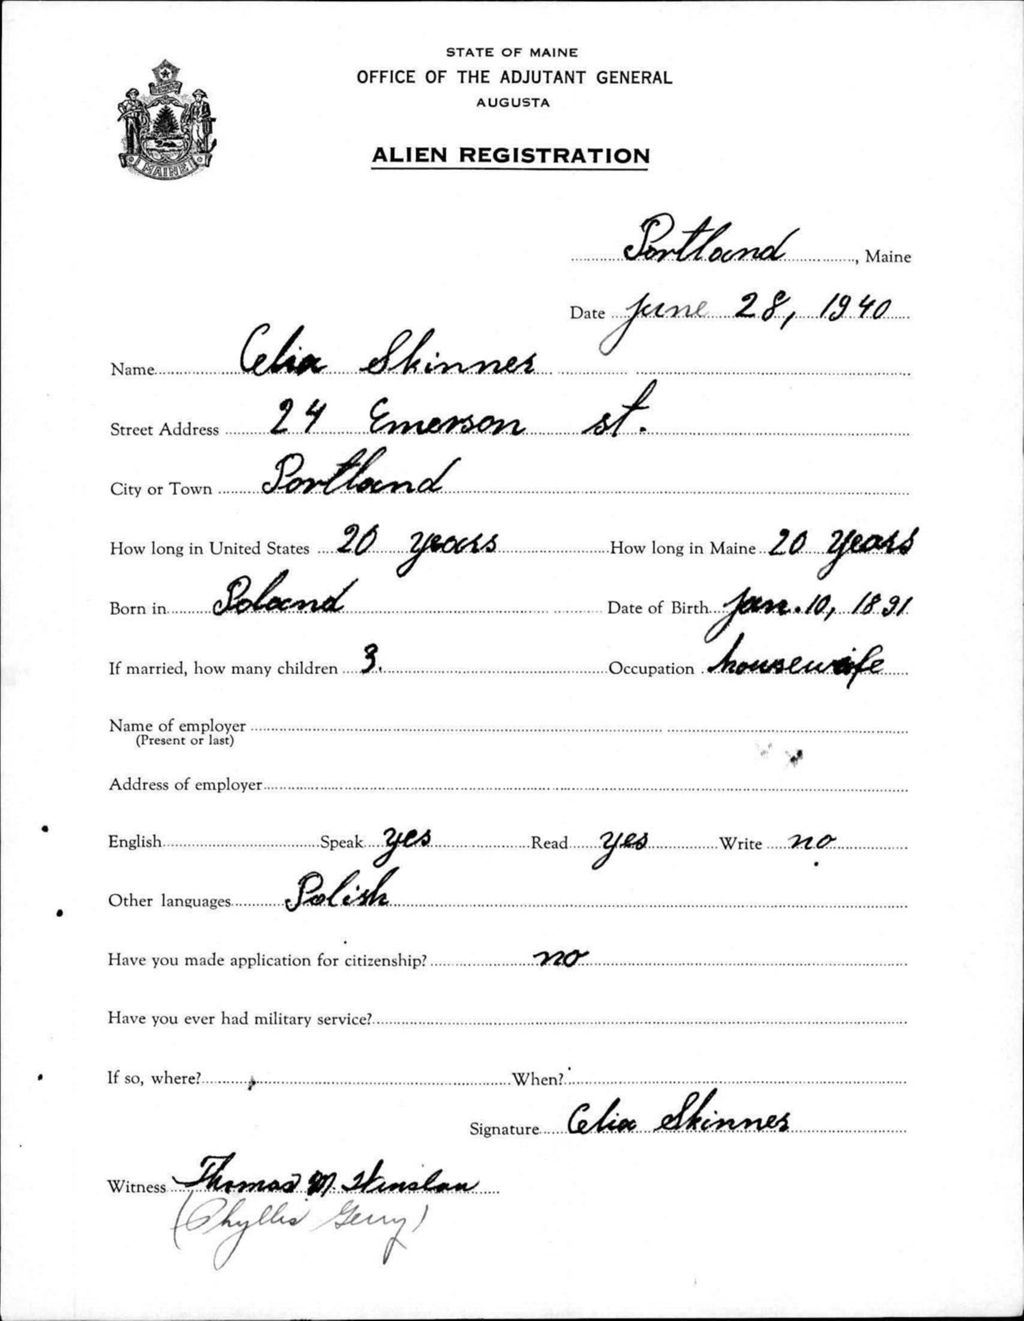 STATE OF MAINE
OFFICE OF THE ADJUTANT GENERAL
AUGUSTA
ALIEN REGISTRATION
MAINE
Portland, Maine
Date June 28, 1940
Name Celia Skinner
Street Address 24 Emerson st.
City or Town Portland
How long in United States 20 years How long in Maine 20 Years
Born in Poland Date of Birth Jan. 10, 1891
If married, how many children 3. Occupation housewife
Name of employer
(Present or last)
Address of employer
English Speak yes Read yes Write no
Other languages Polish
Have you made application for citizenship? no
Have you ever had military service?
If so, where? When?
Signature Celia Skinner
Witness Thomas M. Winslow
(Phyllis Gerry)